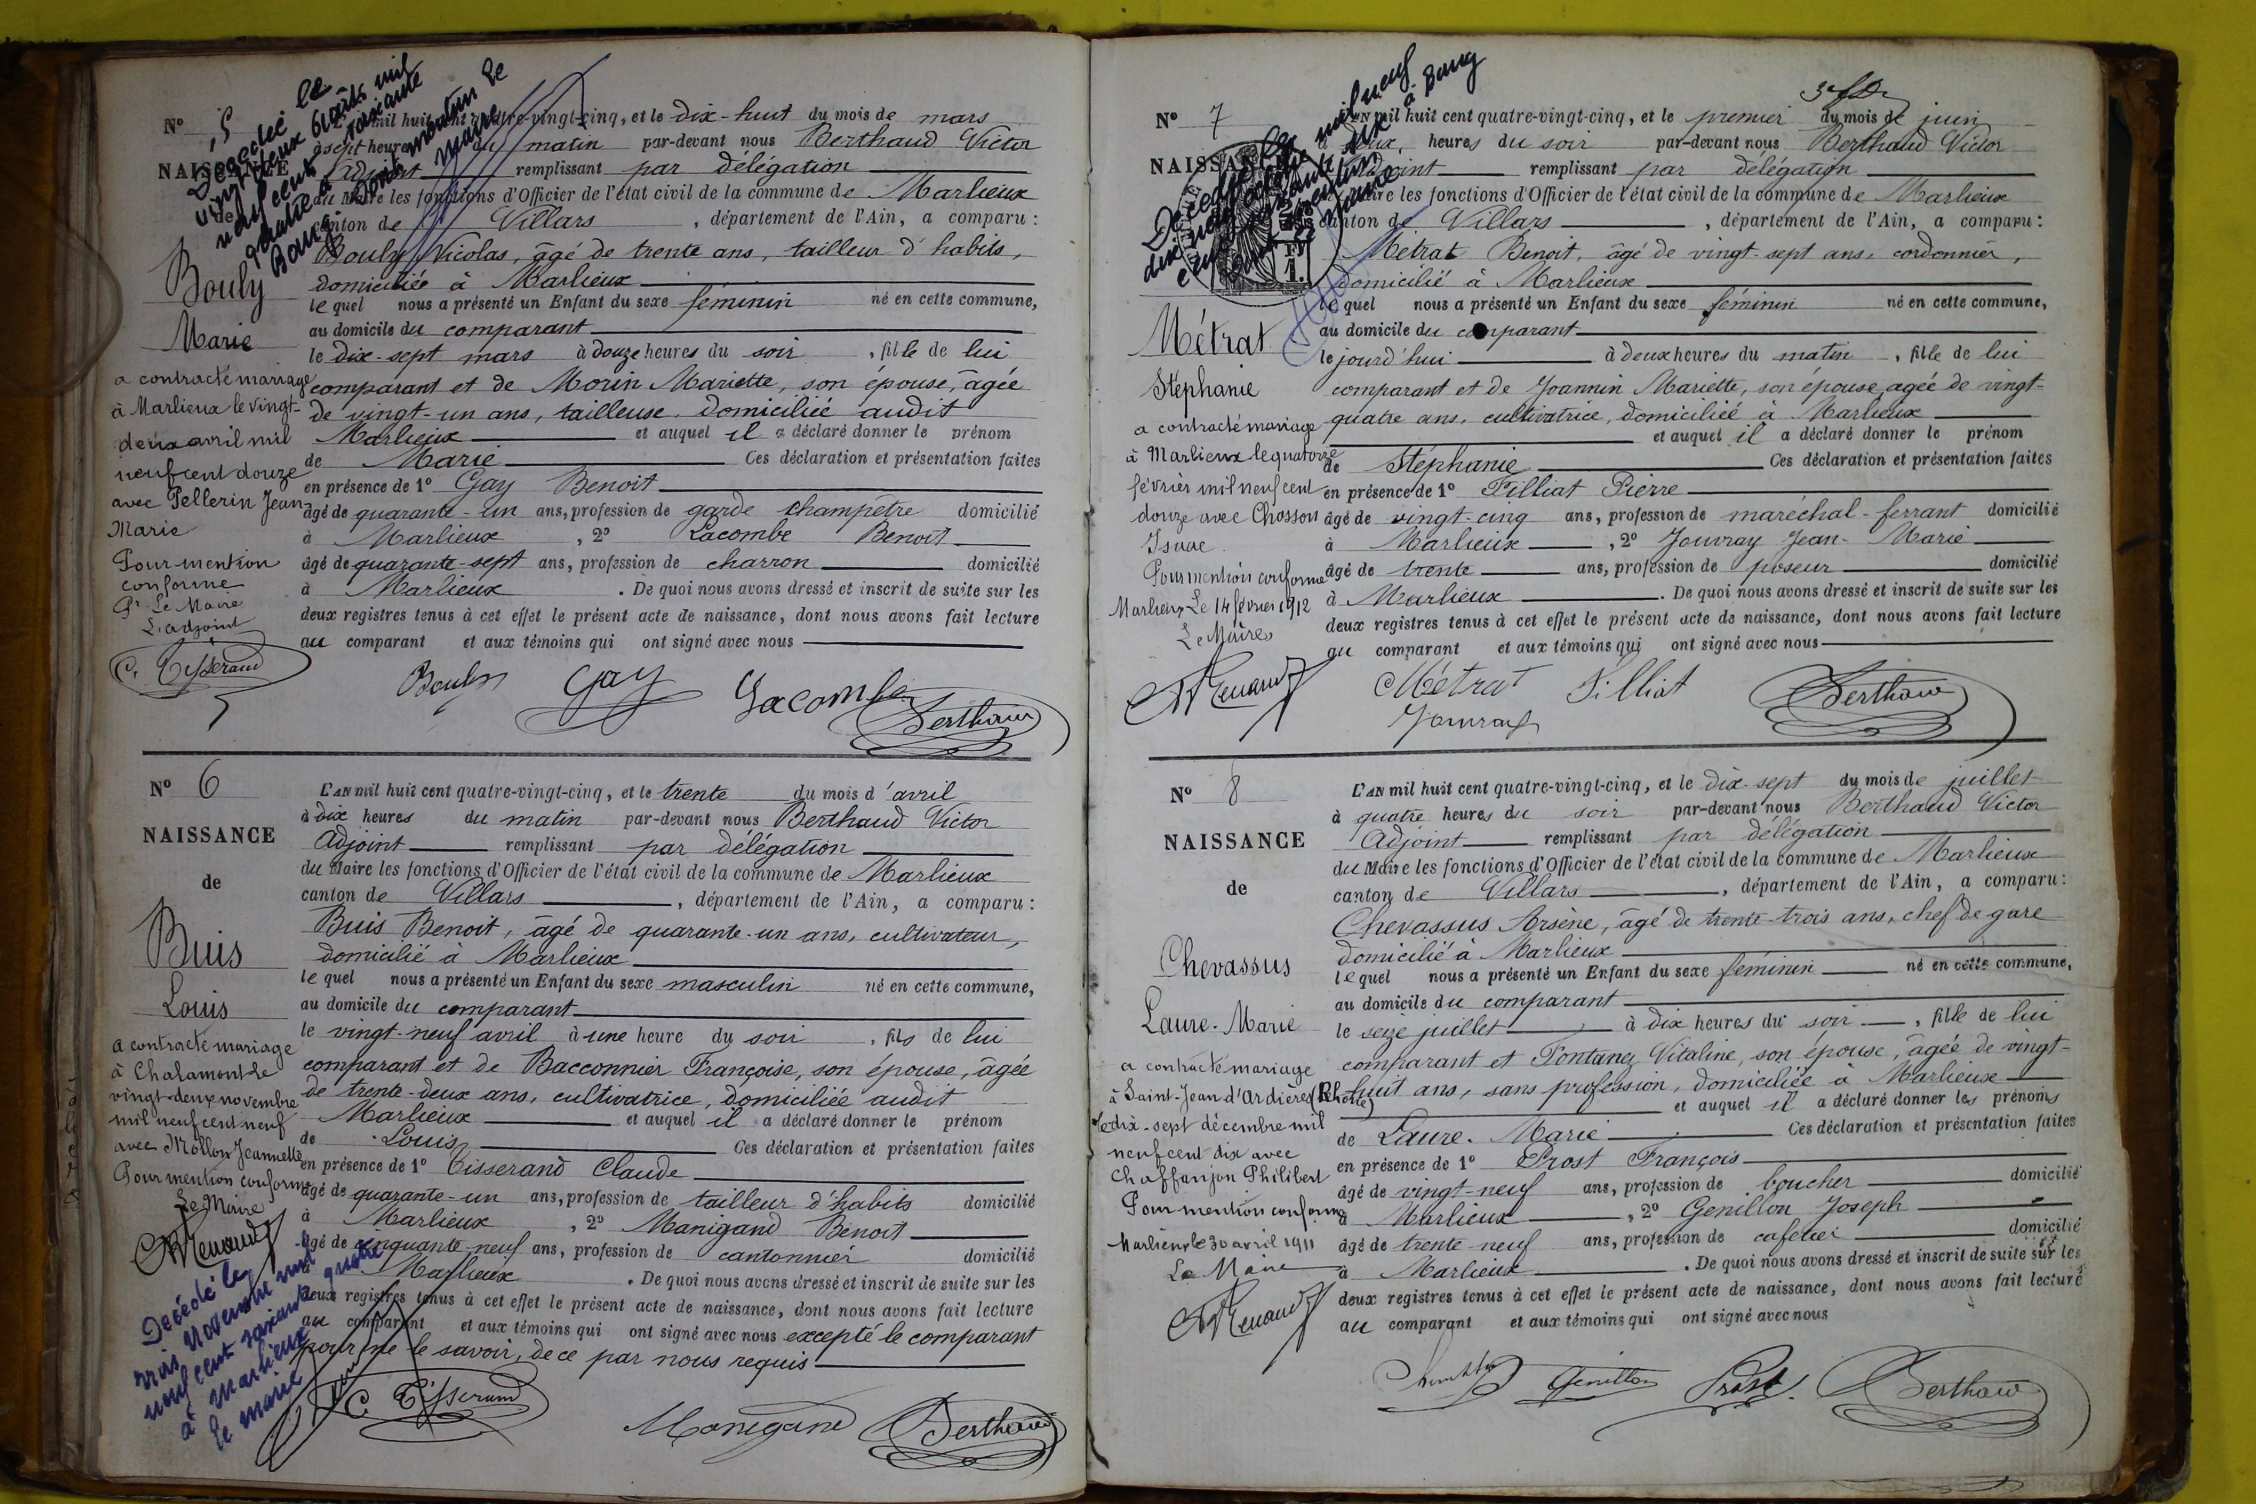 Nº 5
NAISSANCE
de
Bouly
Marie
a contracté mariage
à Marlieux le vingt-
deux avril mil
neuf cent douze
avec Pellerin Jean
Marie
Pour mention
conforme
Pr Le Maire
L'adjoint
C. Tisserand
Décédée le
mil
neuf cent soixante
quatre à
Bourg Dont mention le
maire
mil huit cent quatre-vingt-cinq, et le dix-huit du mois de mars
à sept heures du matin par-devant nous Berthaud Victor
Adjoint remplissant par délégation
du Maire les fonctions d'Officier de l'état civil de la commune de Marlieux
canton de Villars, département de l'Ain, a comparu :
Bouly Nicolas, âgé de trente ans, tailleur d'habits,
domicilié à Marlieux
lequel nous a présenté un Enfant du sexe féminin né en cette commune,
au domicile du comparant
le dix-sept mars à douze heures du soir, fille de lui
comparant et de Morin Mariette, son épouse, âgée
de vingt-un ans, tailleuse, domiciliée audit
Marlieux et auquel il a déclaré donner le prénom
de Marie Ces déclaration et présentation faites
en présence de 1º Gay Benoit
âgé de quarante-un ans, profession de garde champêtre domicilié
à Marlieux, 2º Lacombe Benoit
âgé de quarante-sept ans, profession de charron domicilié
à Marlieux. De quoi nous avons dressé et inscrit de suite sur les
deux registres tenus à cet effet le présent acte de naissance, dont nous avons fait lecture
au comparant et aux témoins qui ont signé avec nous
Bouly Gay Lacombe Berthaud
Nº 6
NAISSANCE
de
Buis
Louis
a contracté mariage
à Chalamont le
vingt-deux novembre
mil neuf cent neuf
avec Mollon Jeannette
Pour mention conforme
Le Maire
Renaud
Décédé le
trois novembre mil
neuf cent soixante quatre
à Marlieux
le maire
L'AN mil huit cent quatre-vingt-cinq, et le trente du mois d'avril
à dix heures du matin par-devant nous Berthaud Victor
Adjoint remplissant par délégation
du Maire les fonctions d'Officier de l'état civil de la commune de Marlieux
canton de Villars, département de l'Ain, a comparu :
Buis Benoit, âgé de quarante-un ans, cultivateur,
domicilié à Marlieux
lequel nous a présenté un Enfant du sexe masculin né en cette commune,
au domicile du comparant
le vingt-neuf avril à une heure du soir, fils de lui
comparant et de Bacconnier Françoise, son épouse, âgée
de trente-deux ans, cultivatrice, domiciliée audit
Marlieux et auquel il a déclaré donner le prénom
de Louis Ces déclaration et présentation faites
en présence de 1º Tisserand Claude
âgé de quarante-un ans, profession de tailleur d'habits domicilié
à Marlieux, 2º Manigand Benoit
âgé de cinquante neuf ans, profession de cantonnier domicilié
à Marlieux. De quoi nous avons dressé et inscrit de suite sur les
deux registres tenus à cet effet le présent acte de naissance, dont nous avons fait lecture
au comparant et aux témoins qui ont signé avec nous excepté le comparant
pour ne le savoir, de ce par nous requis
C. Tisserand
Manigand Berthaud
Nº 7
NAISSANCE
Métrat
Stéphanie
a contracté mariage
à Marlieux le quatorze
février mil neuf cent
douze avec Chosson
Isaac
Pour mention conforme
Marlieux Le 14 février 1912
Le Maire
Renaud
Décédée le
mil neuf
à Bourg
L'AN mil huit cent quatre-vingt-cinq, et le premier du mois de juin
à deux heures du soir par-devant nous Berthaud Victor
Adjoint remplissant par délégation
du Maire les fonctions d'Officier de l'état civil de la commune de Marlieux
canton de Villars, département de l'Ain, a comparu :
Métrat Benoit, âgé de vingt-sept ans, cordonnier,
domicilié à Marlieux
lequel nous a présenté un Enfant du sexe féminin né en cette commune,
au domicile du comparant
le jourd'hui à deux heures du matin, fille de lui
comparant et de Joannin Mariette, son épouse, âgée de vingt-
quatre ans, cultivatrice, domiciliée à Marlieux
et auquel il a déclaré donner le prénom
de Stéphanie Ces déclaration et présentation faites
en présence de 1º Filliat Pierre
âgé de vingt-cinq ans, profession de maréchal-ferrant domicilié
à Marlieux, 2º Jouvray Jean-Marie
âgé de trente ans, profession de poseur domicilié
à Marlieux. De quoi nous avons dressé et inscrit de suite sur les
deux registres tenus à cet effet le présent acte de naissance, dont nous avons fait lecture
au comparant et aux témoins qui ont signé avec nous
Métrat Filliat Berthaud
Jouvray
Nº 8
NAISSANCE
de
Chevassus
Laure-Marie
a contracté mariage
à Saint-Jean d'Ardières (Rhône)
le dix-sept décembre mil
neuf cent dix avec
Chaffanjon Philibert
Pour mention conforme
Marlieux le 30 avril 1911
Le Maire
Renaud
L'AN mil huit cent quatre-vingt-cinq, et le dix-sept du mois de juillet
à quatre heures du soir par-devant nous Berthaud Victor
Adjoint remplissant par délégation
du Maire les fonctions d'Officier de l'état civil de la commune de Marlieux
canton de Villars, département de l'Ain, a comparu :
Chevassus Arsène, âgé de trente-trois ans, chef de gare
domicilié à Marlieux
lequel nous a présenté un Enfant du sexe féminin né en cette commune,
au domicile du comparant
le seize juillet à dix heures du soir, fille de lui
comparant et Fontanez Vitaline, son épouse, âgée de vingt-
huit ans, sans profession, domiciliée à Marlieux
et auquel il a déclaré donner les prénoms
de Laure-Marie Ces déclaration et présentation faites
en présence de 1º Prost François
âgé de vingt-neuf ans, profession de boucher domicilié
à Marlieux, 2º Genillon Joseph
âgé de trente neuf ans, profession de cafetier domicilié
à Marlieux. De quoi nous avons dressé et inscrit de suite sur les
deux registres tenus à cet effet le présent acte de naissance, dont nous avons fait lecture
au comparant et aux témoins qui ont signé avec nous
Genillon Prost Berthaud